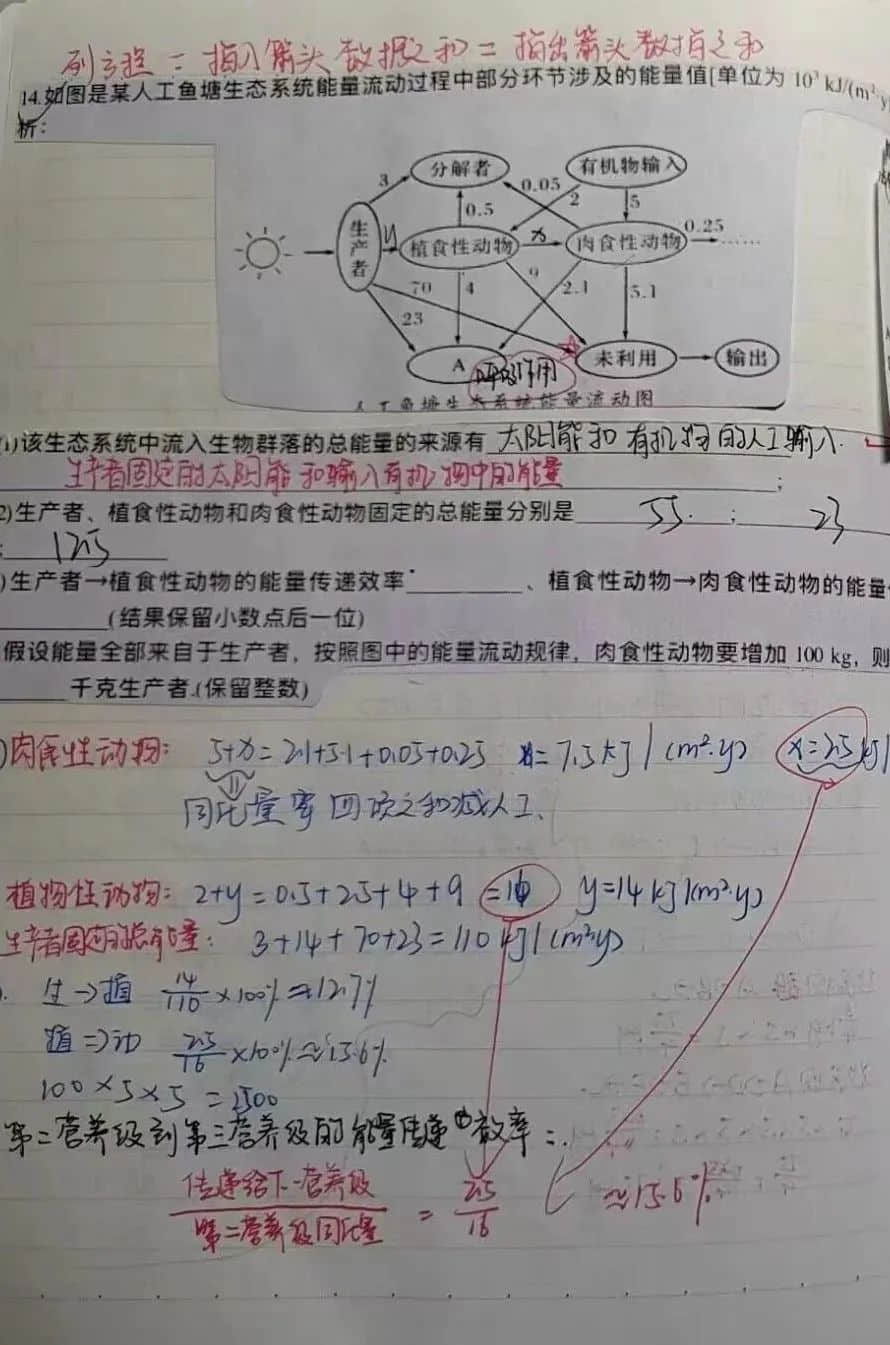 列方程 = 指入箭头数据之和 = 指出箭头数据之和
14.如图是某人工鱼塘生态系统能量流动过程中部分环节涉及的能量值[单位为 10³ kJ/(m²·y
析:
分解者 有机物输入
3 0.5 0.05 2 5
生产者 y 植食性动物 x 肉食性动物 0.25 ……
70 4 9 2.1 5.1
23
A 呼吸作用 未利用 输出
人工鱼塘生态系统能量流动图
1)该生态系统中流入生物群落的总能量的来源有 太阳能和有机物的人工输入.
生产者固定的太阳能和输入有机物中的能量 ;
2)生产者、植食性动物和肉食性动物固定的总能量分别是 55. ; 23
; 125
)生产者→植食性动物的能量传递效率 、植食性动物→肉食性动物的能量
(结果保留小数点后一位)
假设能量全部来自于生产者，按照图中的能量流动规律，肉食性动物要增加 100 kg，则
千克生产者.(保留整数)
)肉食性动物: 5+x=2.1+5.1+0.05+0.25 =7.5 kJ/(m²·y) x=2.5 kJ/
同化量率 四项之和减人工、
植物性动物: 2+y=0.5+2.5+4+9 =16 y=14 kJ/(m²·y)
生产者固定的总能量: 3+14+70+23=110 kJ/(m²y)
生→植 14/110 ×100%≈12.7%
植→动 2.5/16 ×100%≈15.6%
100×5×5=2500
第二营养级到第三营养级的能量传递效率=
传递给下一营养级/第二营养级同化量 = 2.5/16 ≈15.6%